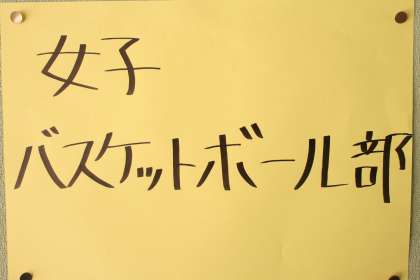 女子
バスケットボール部